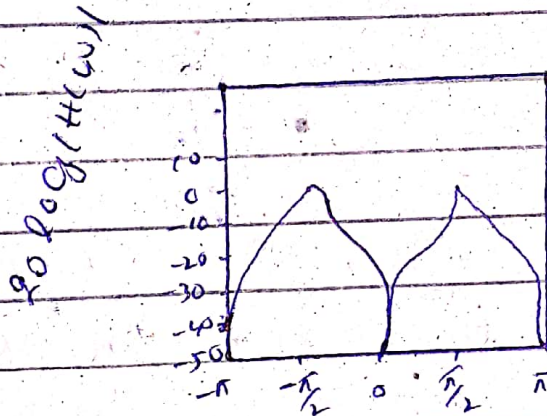 20 log|H(ω)|
10
0
-10
-20
-30
-40
-50
-π -π/2 0 π/2 π